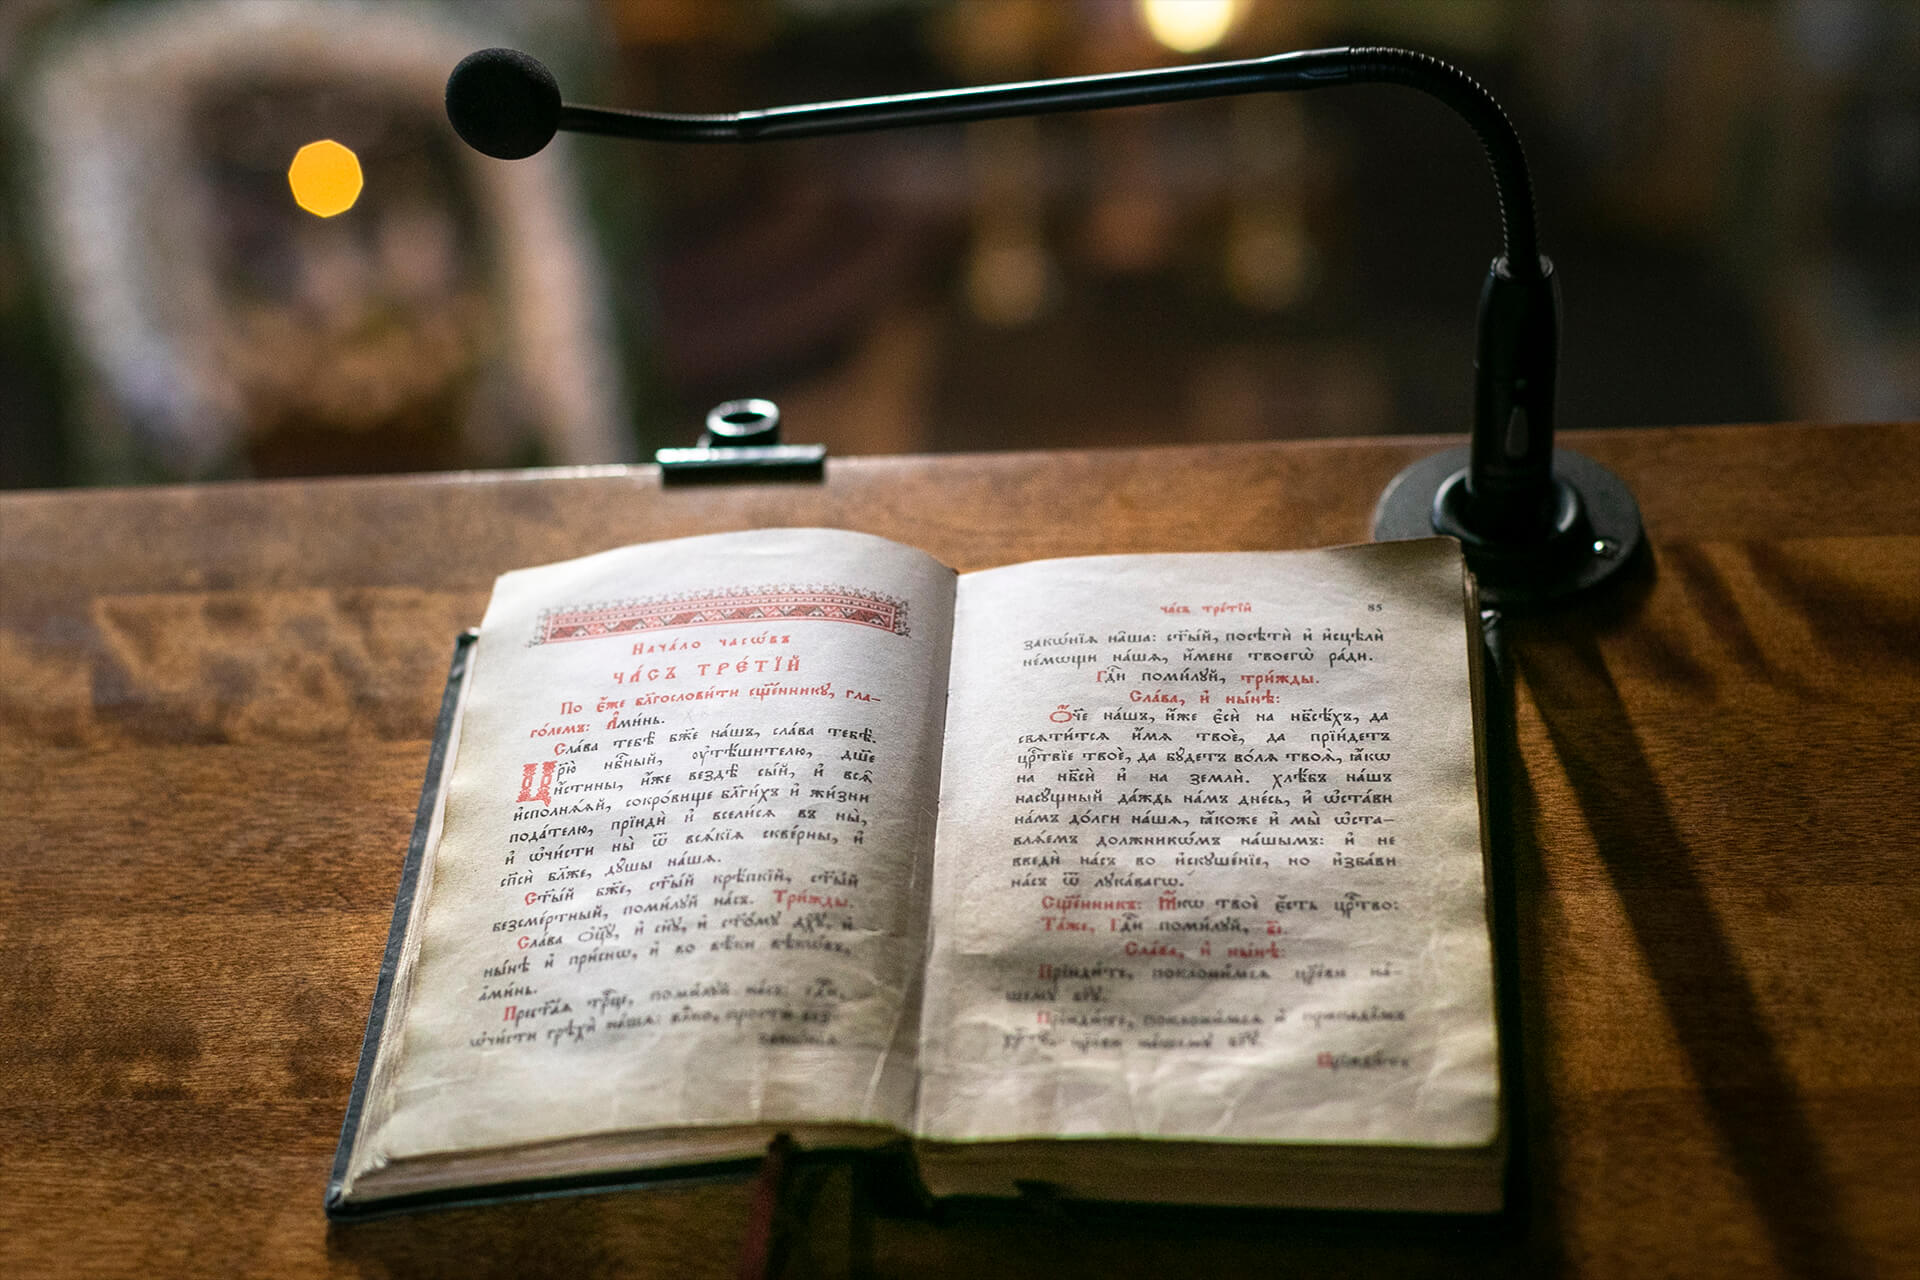 Нача́ло часѡ́въ
ЧА́СЪ ТРЕ́ТІЙ
По є҆́же бл҃гослови́ти сщ҃е́ннику, гла-
го́лемъ: А҆ми́нь.
Сла́ва тебѣ̀ бж҃е на́шъ, сла́ва тебѣ̀.
Цр҃ю̀ нбⷭ҇ный, ᲂу҆тѣ́шителю, дш҃е
и҆́стины, и҆́же вездѣ̀ сы́й, и҆ всѧ̑
и҆сполнѧ́ѧй, сокро́вище бл҃ги́хъ и҆ жи́зни
пода́телю, прїидѝ и҆ всели́сѧ въ ны̀,
и҆ ѡ҆чи́сти ны̀ ѿ всѧ́кїѧ скве́рны, и҆
сп҃сѝ бл҃же, дꙋ́шы на́шѧ.
Ст҃ы́й бж҃е, ст҃ы́й крѣ́пкїй, ст҃ы́й
безсме́ртный, поми́лꙋй на́съ. Три́жды.
Сла́ва ѻ҆ц҃ꙋ̀, и҆ сн҃ꙋ, и҆ ст҃о́мꙋ дх҃ꙋ, и҆
ны́нѣ и҆ при́снѡ, и҆ во вѣ́ки вѣкѡ́въ,
а҆ми́нь.
Прест҃а́ѧ трⷪ҇це, поми́лꙋй на́съ: гдⷭ҇и,
ѡ҆чи́сти грѣхѝ на́шѧ: влⷣко, простѝ без-
ча́съ тре́тїй 85
закѡ́нїѧ на̑ша: ст҃ы́й, посѣтѝ и҆ и҆сцѣлѝ
не́мѡщи на́шѧ, и҆́мене твоегѡ̀ ра́ди.
Гдⷭ҇и поми́лꙋй, три́жды.
Сла́ва, и҆ ны́нѣ:
Ѻ҆́ч҃е на́шъ, и҆́же є҆сѝ на нб҃сѣ́хъ, да
свѧти́тсѧ и҆́мѧ твоѐ, да прїи́детъ
црⷭ҇твїе твоѐ, да бꙋ́детъ во́лѧ твоѧ̀, ꙗ҆́кѡ
на нб҃сѝ и҆ на землѝ. хлѣ́бъ на́шъ
насꙋ́щный да́ждь на́мъ дне́сь, и҆ ѡ҆ста́ви
на́мъ до́лги на́шѧ, ꙗ҆́коже и҆ мы̀ ѡ҆ста-
влѧ́емъ должникѡ́мъ на́шымъ: и҆ не
введѝ на́съ во и҆скꙋше́нїе, но и҆зба́ви
на́съ ѿ лꙋка́вагѡ.
Сщ҃е́нникъ: Ꙗ҆́кѡ твоѐ є҆́сть црⷭ҇тво:
Та́же, Гдⷭ҇и поми́лꙋй, в҃і.
Сла́ва, и҆ ны́нѣ:
Прїиди́те, поклони́мсѧ цр҃е́ви на́-
шемꙋ бг҃ꙋ.
Прїиди́те, поклони́мсѧ и҆ припаде́мъ
Прїиди́те